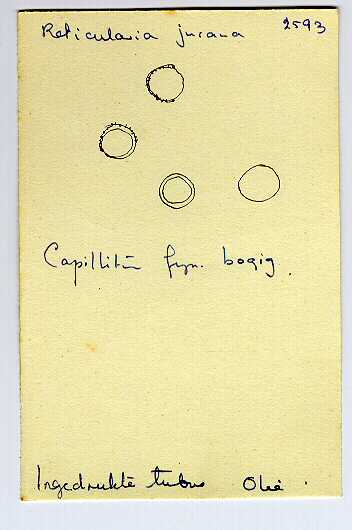 Reticularia jurana 2593
Capillitium fyn. bogig.
Ingedrukte tubus Olie.